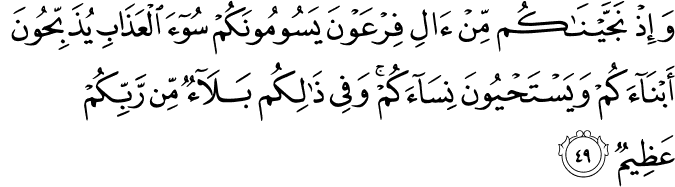 وَإِذۡ نَجَّيۡنَٰكُم مِّنۡ ءَالِ فِرۡعَوۡنَ يَسُومُونَكُمۡ سُوٓءَ ٱلۡعَذَابِ يُذَبِّحُونَ
أَبۡنَآءَكُمۡ وَيَسۡتَحۡيُونَ نِسَآءَكُمۡۚ وَفِي ذَٰلِكُم بَلَآءٞ مِّن رَّبِّكُمۡ
عَظِيمٞ ٤٩